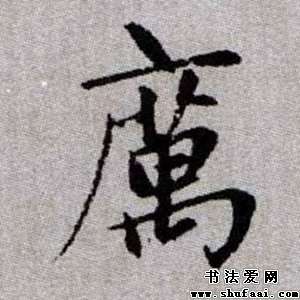 厲
书法爱网
www.shufaai.com